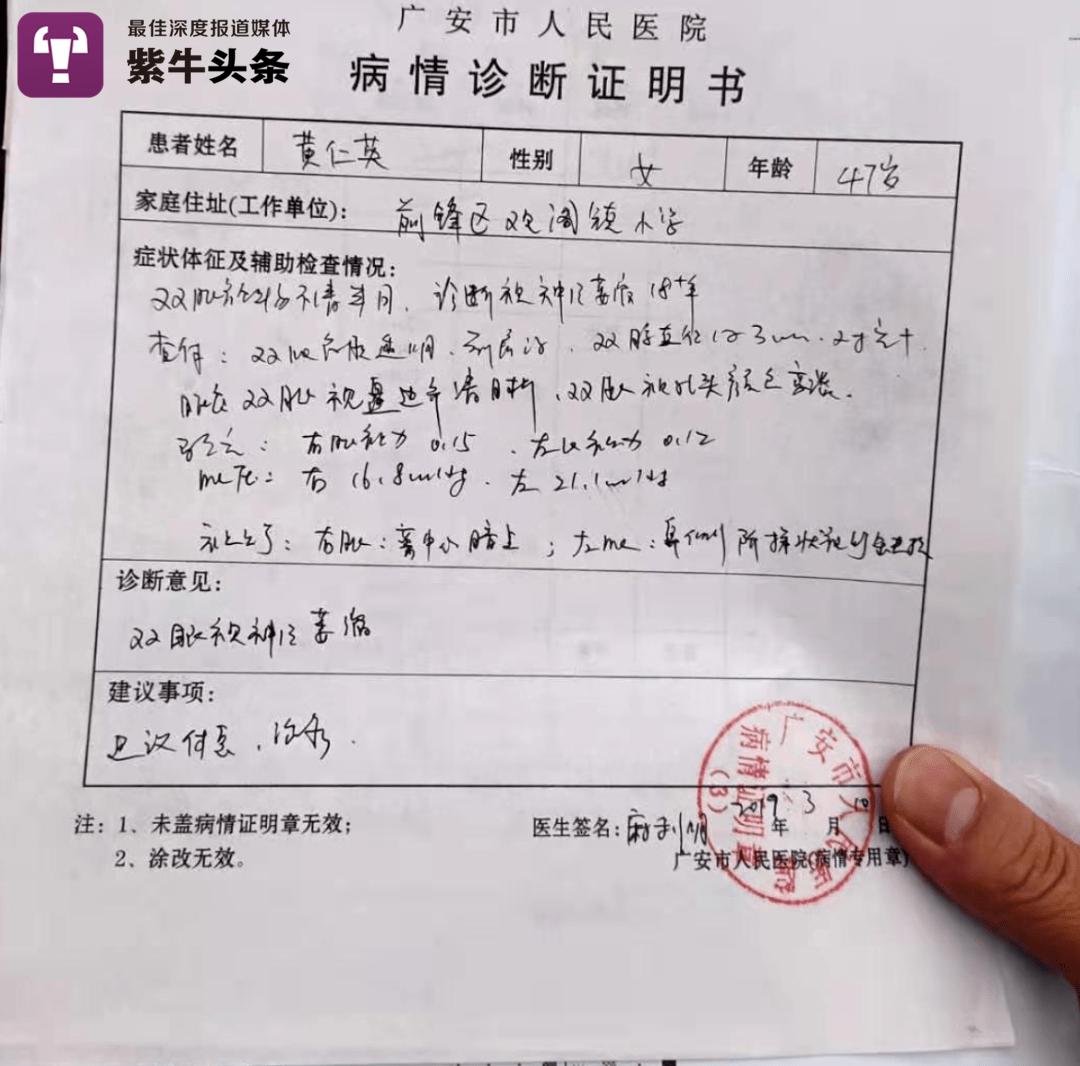 最佳深度报道媒体
紫牛头条
广安市人民医院
病情诊断证明书
患者姓名 黄仁英 性别 女 年龄 47岁
家庭住址(工作单位): 前锋区观阁镇小学
症状体征及辅助检查情况:
双眼视物不清半月、诊断视神经萎缩18+年
查体: 双眼角膜透明、双瞳直径约3mm、
双眼视盘边界清晰、双眼视乳头颜色变淡.
右眼视力 0.15 、左眼视力 0.12
右 16.8mmHg . 左 21.1mmHg
右眼: 离中心暗点 ; 左眼: 鼻侧阶梯状视野
诊断意见:
双眼视神经萎缩
建议事项:
建议休息、治疗.
注: 1、未盖病情证明章无效;
2、涂改无效。
医生签名: 2019年3月10日
广安市人民医院(病情专用章)
广安市人民医院
病情证明章
(3)